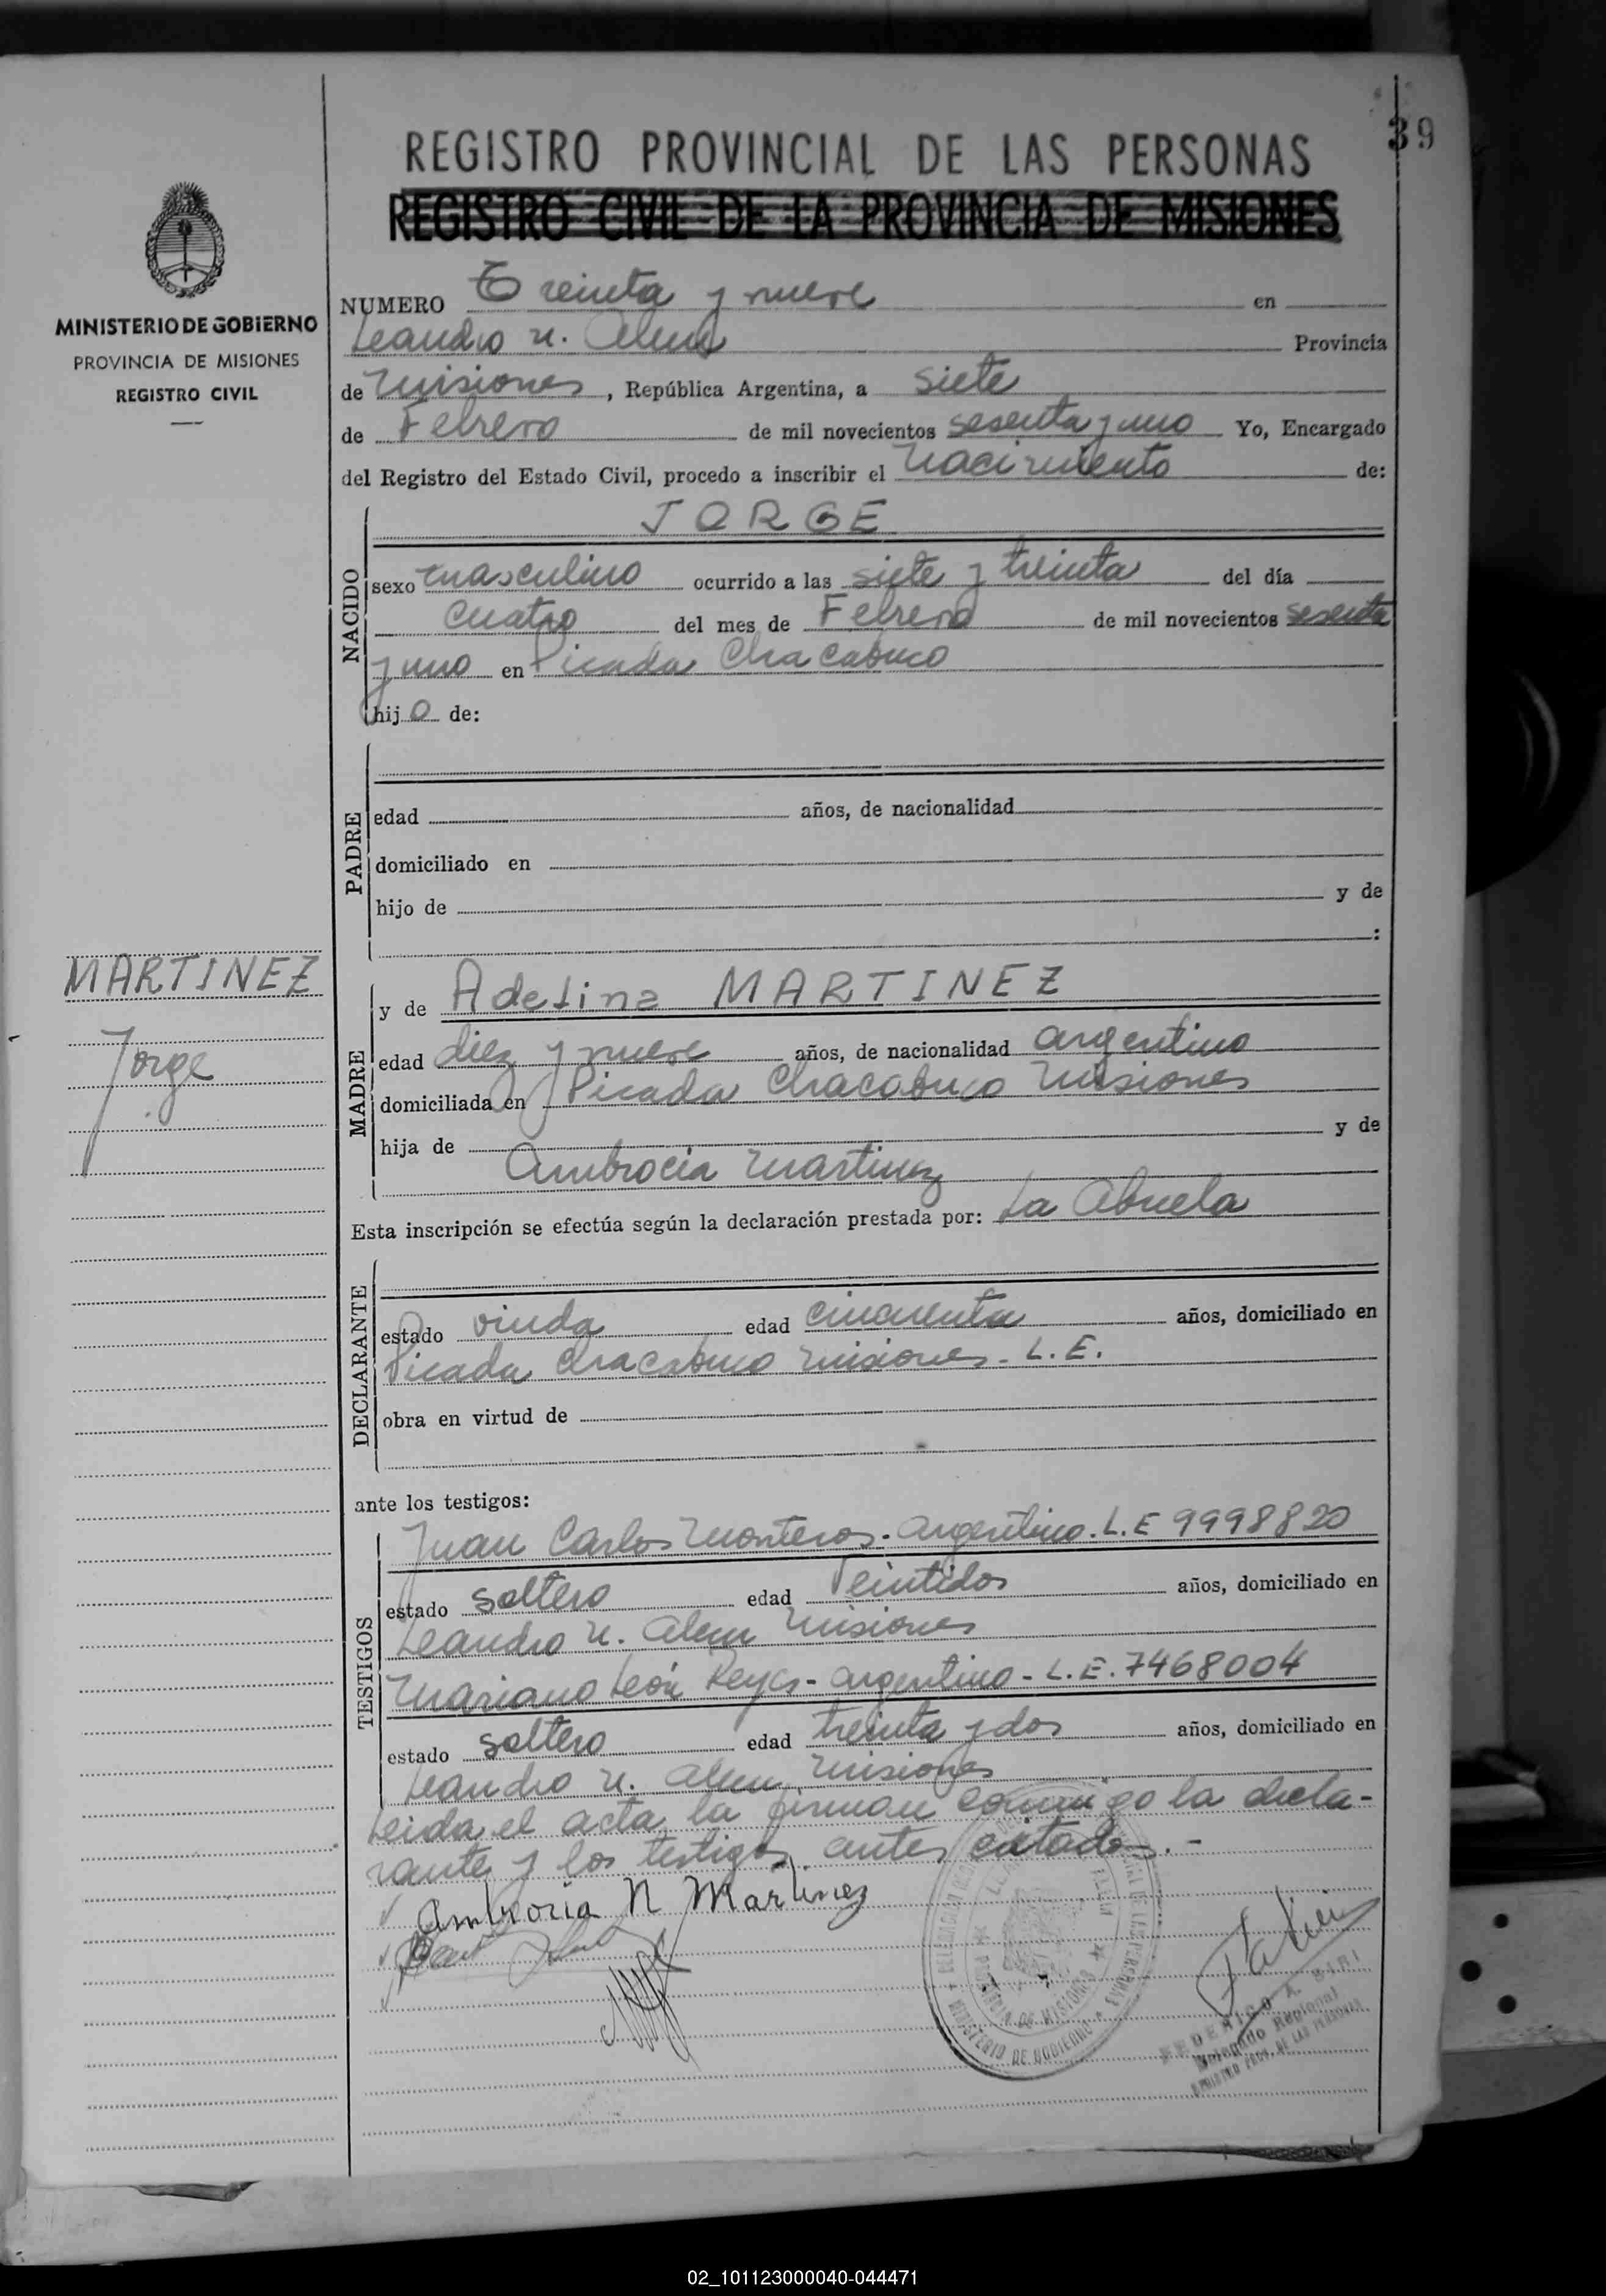 39
REGISTRO PROVINCIAL DE LAS PERSONAS
REGISTRO CIVIL DE LA PROVINCIA DE MISIONES
MINISTERIO DE GOBIERNO
PROVINCIA DE MISIONES
REGISTRO CIVIL
NUMERO Treinta y nueve en
Leandro N. Alem Provincia
de Misiones, República Argentina, a siete
de Febrero de mil novecientos sesenta y uno Yo, Encargado
del Registro del Estado Civil, procedo a inscribir el Nacimiento de:
NACIDO
JORGE
sexo masculino ocurrido a las siete y treinta del día
cuatro del mes de Febrero de mil novecientos sesenta
y uno en Picada Chacabuco
hijo de:
PADRE
edad años, de nacionalidad
domiciliado en
hijo de y de
:
MARTINEZ
Jorge
MADRE
y de Adelina MARTINEZ
edad diez y nueve años, de nacionalidad argentino
domiciliada en Picada Chacabuco Misiones
hija de y de
Ambrocia Martinez
Esta inscripción se efectúa según la declaración prestada por: La Abuela
DECLARANTE
estado viuda edad cincuenta años, domiciliado en
Picada Chacabuco Misiones - L.E.
obra en virtud de
ante los testigos:
TESTIGOS
Juan Carlos Monteros - argentino. L.E 9998820
estado soltero edad Veintidos años, domiciliado en
Leandro N. Alem Misiones
Mariano León Reyes - argentino - L.E. 7468004
estado soltero edad treinta y dos años, domiciliado en
Leandro N. Alem Misiones
Leida el acta la firman conmigo la decla-
rante y los testigos antes citados. -
Ambrocia N Martinez
MINISTERIO DE GOBIERNO
PROVINCIA DE MISIONES
FEDERICO A. SIRI
Delegado Regional
REGISTRO PROV. DE LAS PERSONAS
02_101123000040-044471